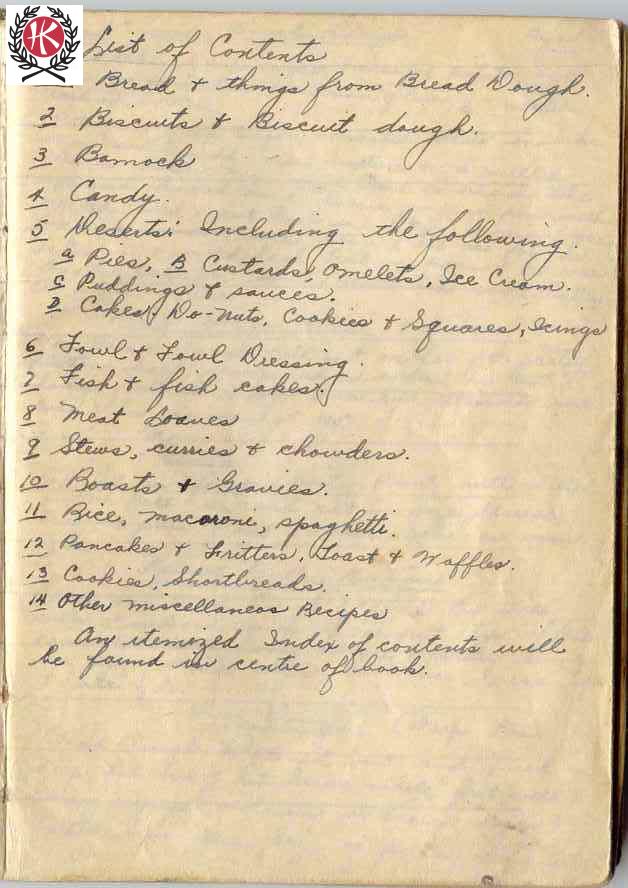 HK
List of Contents
Bread & things from Bread Dough.
2 Biscuits & Biscuit dough.
3 Bannock
4 Candy.
5 Deserts: Including the following.
a Pies, B Custards, Omelets, Ice Cream.
C Puddings & sauces.
D Cakes, Do-Nuts, Cookies & Squares, Icings
6 Fowl & Fowl Dressing.
7 Fish & fish cakes.
8 Meat Loaves
9 Stews, curries & chowders.
10 Roasts & Gravies.
11 Rice, macaroni, spaghetti.
12 Pancakes & Fritters, Toast & Waffles.
13 Cookies, Shortbreads.
14 Other miscellaneos Recipes
An itemized Index of contents will
be found in centre of book.